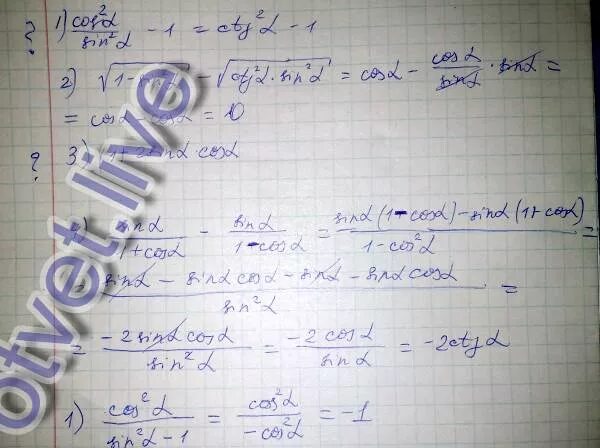 ? 1) cos²α / sin²α - 1 = ctg²α - 1
2) √(1 - sin²α) - √(ctg²α · sin²α) = cosα - cosα / sinα · sinα =
= cosα - cosα = 0
? 3) 1 + 2sinα cosα
4) sinα / (1 + cosα) - sinα / (1 - cosα) = (sinα(1 - cosα) - sinα(1 + cosα)) / (1 - cos²α) =
= (sinα - sinα cosα - sinα - sinα cosα) / sin²α =
= -2 sinα cosα / sin²α = -2 cosα / sinα = -2ctgα
1) cos²α / (sin²α - 1) = cos²α / -cos²α = -1
otvet.live